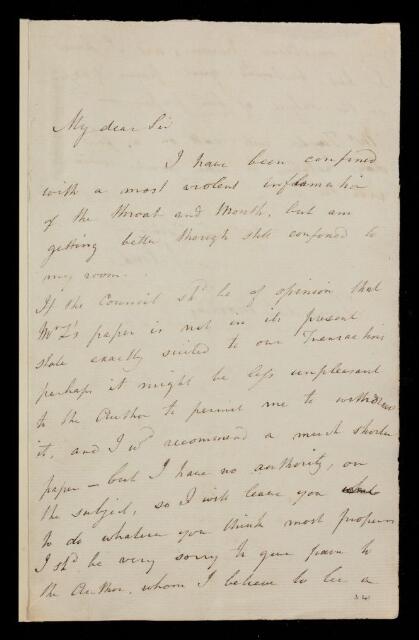 My dear Sir
I have been confined
with a most violent inflamation
of the throat and Mouth, but am
getting better though still confined to
my room.
If the Council shd be of opinion that
Mr Z's paper is not in its present
state exactly suited to our Transactions
perhaps it might be less unpleasant
to the Author to permit me to withdraw
it, and I wd recommend a much shorter
paper — but I have no authority, on
the subject, so I will leave you
to do whatever you think most proper
I shd be very sorry to give pain to
the Author, whom I believe to be a